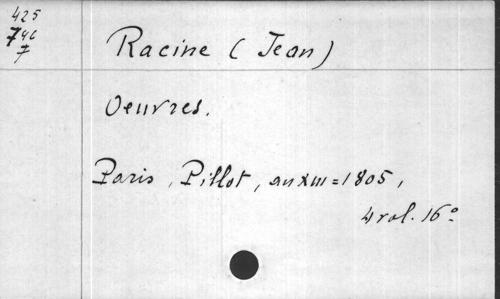 425
746
7
Racine (Jean)
Oeuvres.
Paris, Pillot, an XIII = 1805,
4 vol. 16°